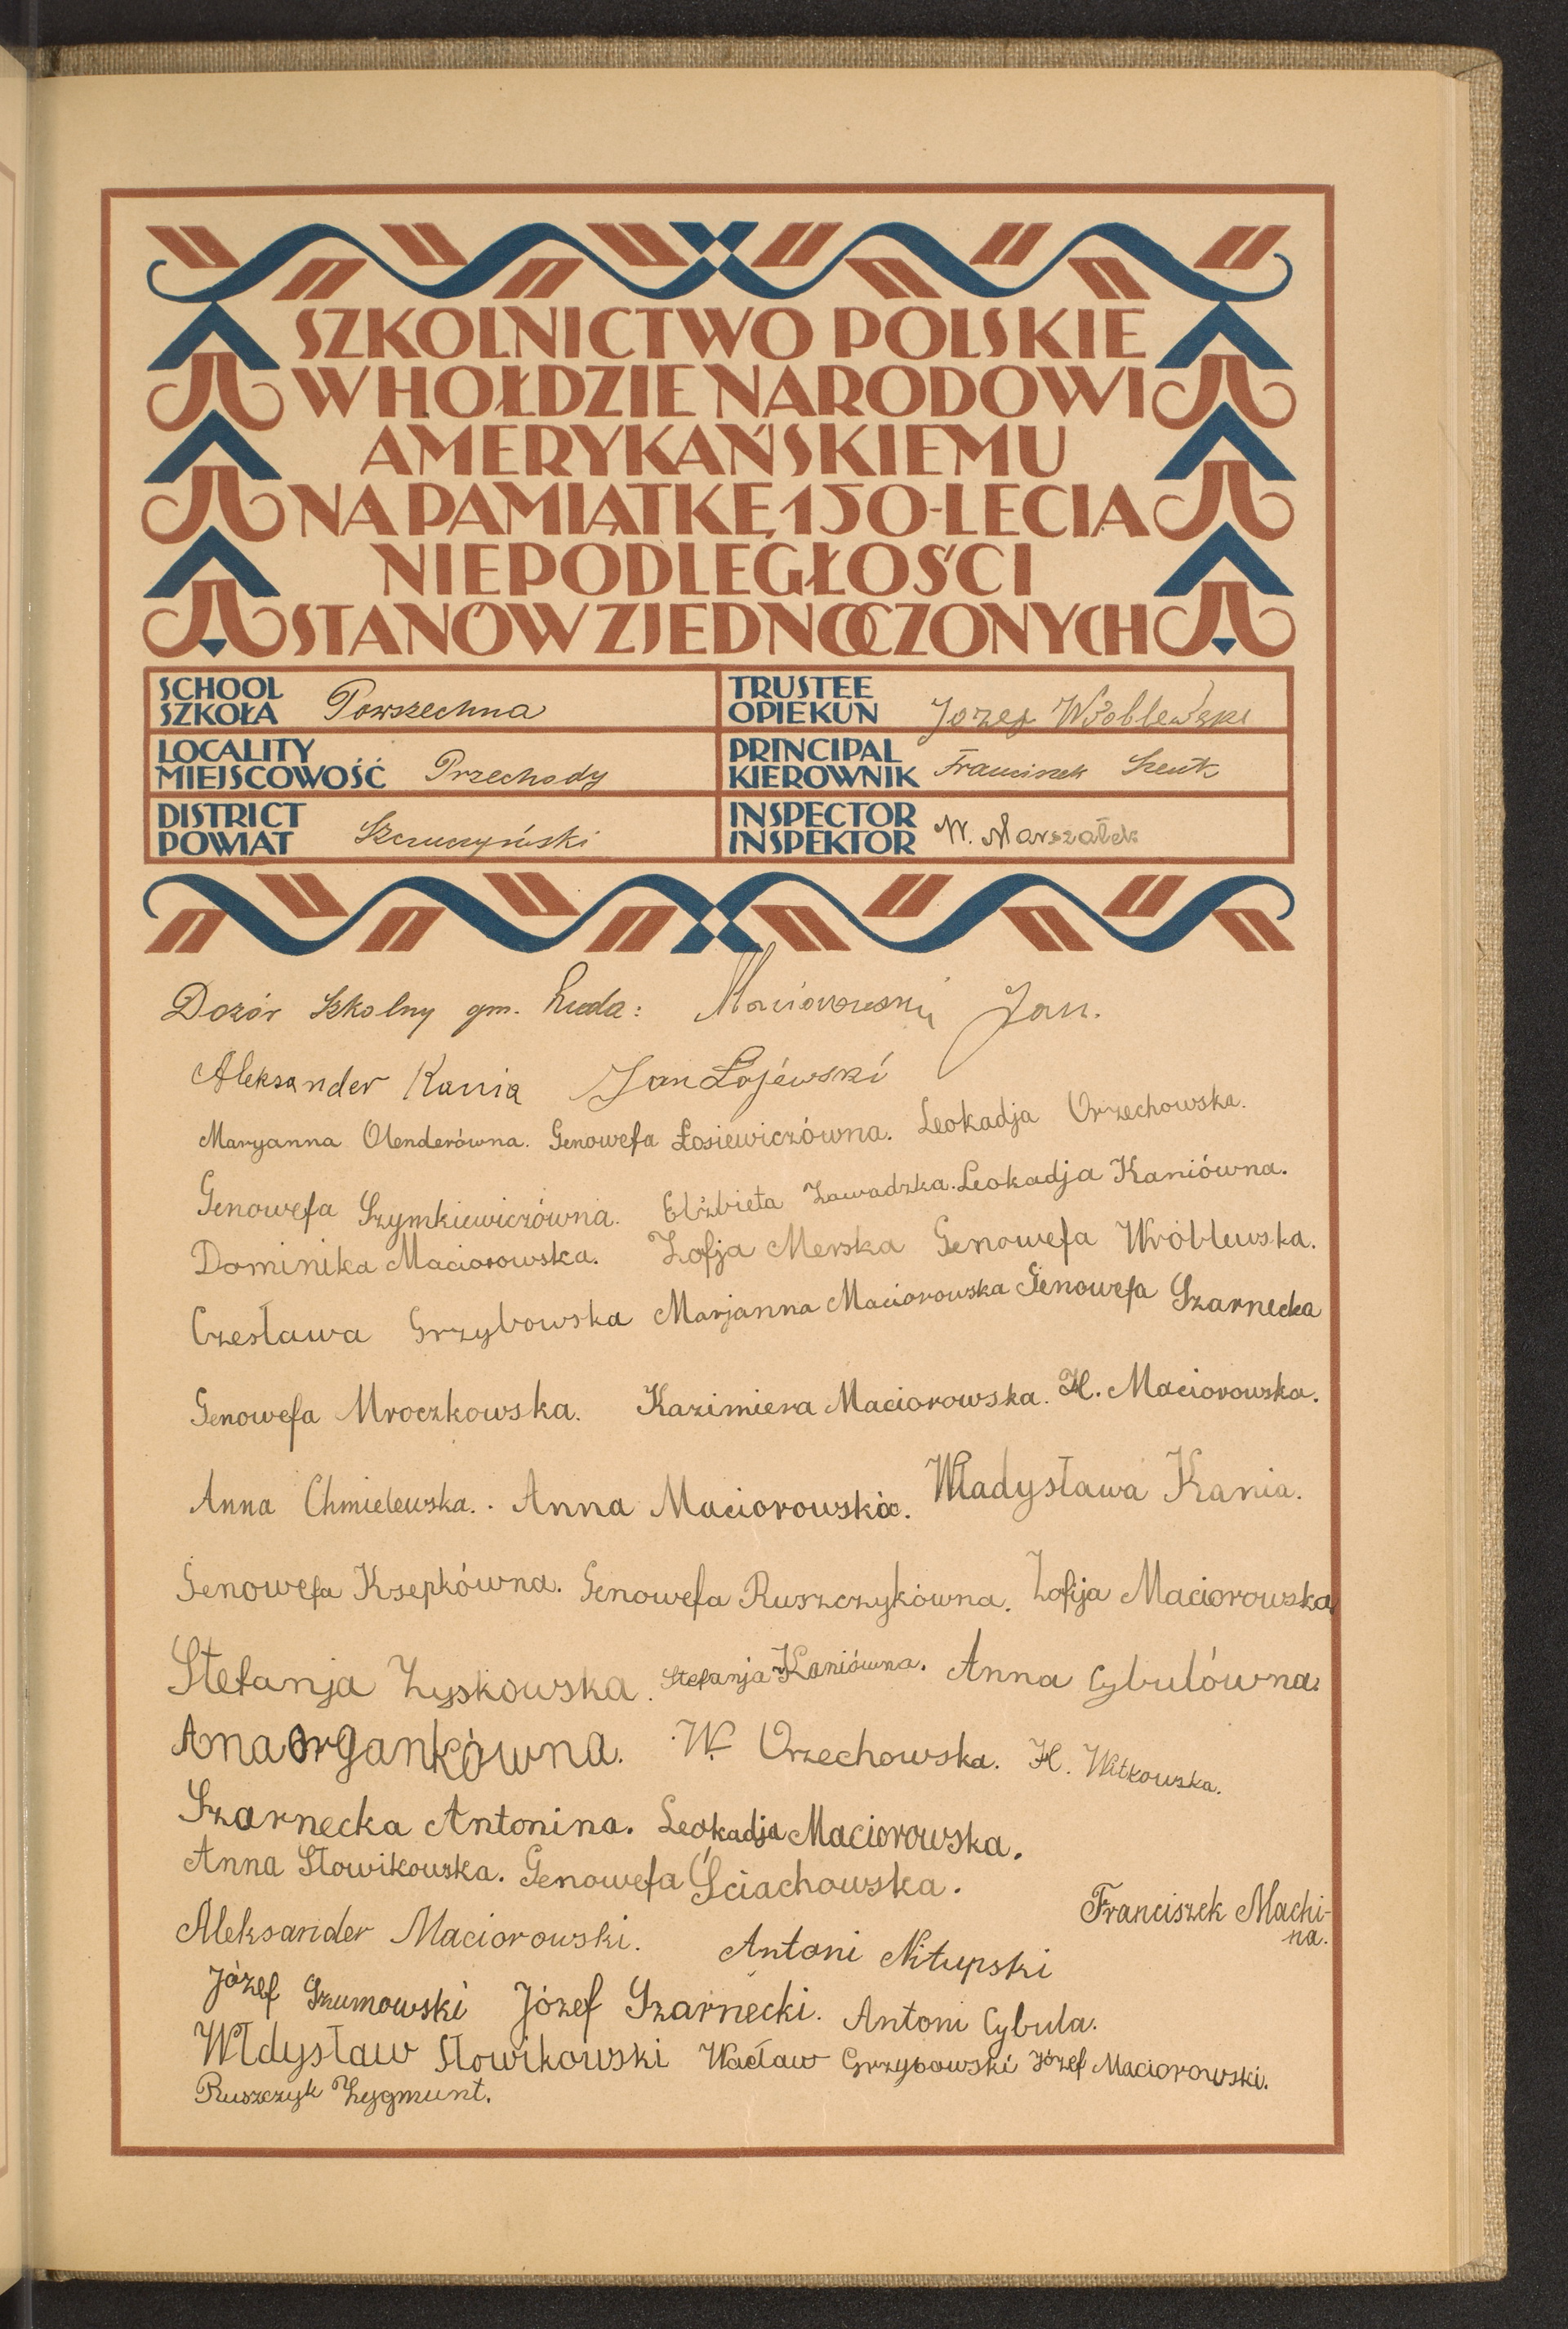 SZKOLNICTWO POLSKIE
W HOŁDZIE NARODOWI
AMERYKAŃSKIEMU
NA PAMIĄTKĘ 150-LECIA
NIEPODLEGŁOŚCI
STANÓW ZJEDNOCZONYCH
SCHOOL
SZKOŁA Powszechna
TRUSTEE
OPIEKUN Jozef Wróblewski
LOCALITY
MIEJSCOWOŚĆ Przechody
PRINCIPAL
KIEROWNIK Franciszek
DISTRICT
POWIAT Szczuczyński
INSPECTOR
INSPEKTOR W. Marszałek
Dozór Szkolny gm. Ruda: Maciorowski Jan.
Aleksander Kania Jan Łojewski
Maryanna Olenderówna. Genowefa Łosiewiczówna. Leokadja Orzechowska.
Genowefa Szymkiewiczówna. Elżbieta Zawadzka. Leokadja Kaniówna.
Dominika Maciorowska. Zofja Merska Genowefa Wróblewska.
Czesława Grzybowska Marjanna Maciorowska Genowefa Szarnecka
Genowefa Mroczkowska. Kazimiera Maciorowska. H. Maciorowska.
Anna Chmielewska. Anna Maciorowska. Władysława Kania.
Genowefa Ksepkówna. Genowefa Ruszczykówna. Zofija Maciorowska
Stefanja Zyskowska. Stefanja Kaniówna. Anna Cybulówna.
Ana organkówna. W. Orzechowska. H. Witkowska.
Szarnecka Antonina. Leokadja Maciorowska.
Anna Słowikowska. Genowefa Ściachowska.
Franciszek Machi-
na.
Aleksander Maciorowski. Antoni Nitupski
Józef Szumowski Józef Szarnecki. Antoni Cybula.
Włdysław Słowikowski Wacław Grzybowski Józef Maciorowski.
Ruszczyk Zygmunt.